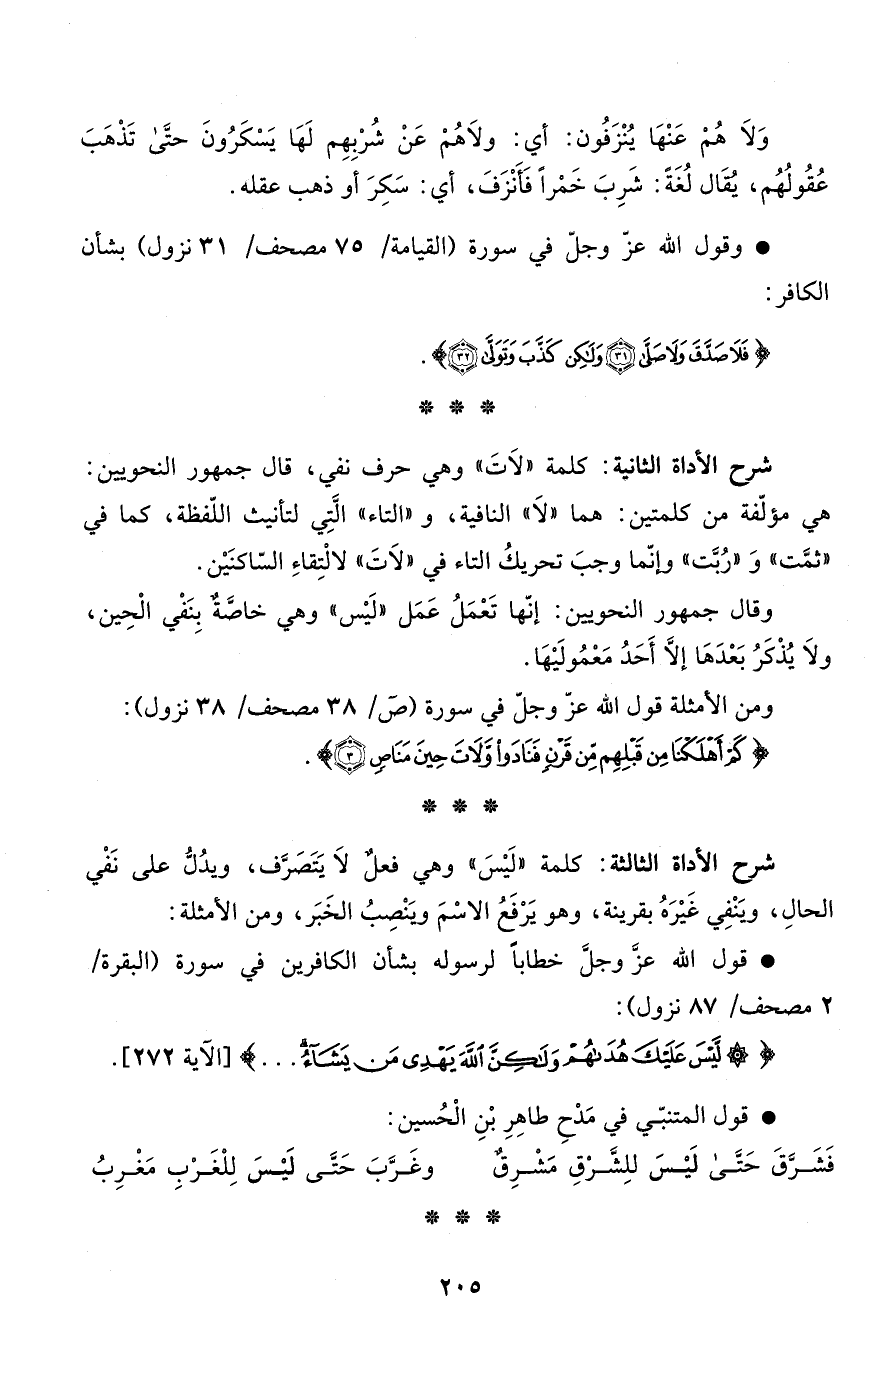 وَلاَ هُمْ عَنْهَا يُنْزَفُون: أي: ولاَهُمْ عَنْ شُرْبِهِم لَهَا يَسْكَرُونَ حتَّىٰ تَذْهَبَ
عُقُولُهُم، يُقَال لُغَةً: شَرِبَ خَمْراً فَأَنْزَفَ، أي: سَكِرَ أو ذهب عقله.
● وقول الله عزّ وجلّ في سورة (القيامة/ ٧٥ مصحف/ ٣١ نزول) بشأن
الكافر:
﴿ فَلَا صَدَّقَ وَلَا صَلَّىٰ ٣١ وَلَـٰكِن كَذَّبَ وَتَوَلَّىٰ ٣٢ ﴾.
* * *
شرح الأداة الثانية: كلمة «لاَتَ» وهي حرف نفي، قال جمهور النحويين:
هي مؤلّفة من كلمتين: هما «لاَ» النافية، و «التاء» الَّتِي لتأنيث اللّفظة، كما في
«ثمَّت» وَ «رُبَّت» وإنّما وجبَ تحريكُ التاء في «لاَتَ» لالْتِقاءِ السّاكنَيْن.
وقال جمهور النحويين: إنّها تَعْمَلُ عَمَل «لَيْس» وهي خاصَّةٌ بِنَفْي الْحِين،
ولاَ يُذْكَرُ بَعْدَهَا إلاَّ أَحَدُ مَعْمُولَيْهَا.
ومن الأمثلة قول الله عزّ وجلّ في سورة (صَ/ ٣٨ مصحف/ ٣٨ نزول):
﴿ كَمْ أَهْلَكْنَا مِن قَبْلِهِم مِّن قَرْنٍ فَنَادَوا۟ وَّلَاتَ حِينَ مَنَاصٍ ٣ ﴾.
* * *
شرح الأداة الثالثة: كلمة «لَيْسَ» وهي فعلٌ لاَ يَتَصَرَّف، ويدُلُّ على نَفْي
الحالِ، ويَنْفِي غَيْرَهُ بقرينة، وهو يَرْفَعُ الاسْمَ ويَنْصِبُ الخَبَر، ومن الأمثلة:
● قول الله عزَّ وجلَّ خطاباً لرسوله بشأن الكافرين في سورة (البقرة/
٢ مصحف/ ٨٧ نزول):
﴿ ۞ لَّيْسَ عَلَيْكَ هُدَىٰهُمْ وَلَـٰكِنَّ ٱللَّهَ يَهْدِى مَن يَشَآءُ ۗ ... ﴾ [الآية ٢٧٢].
● قول المتنبّي في مَدْحِ طاهِرِ بْنِ الْحُسين:
فَشَرَّقَ حَتَّىٰ لَيْسَ لِلشَّرْقِ مَشْرِقٌ وغَرَّبَ حَتَّى لَيْسَ لِلْغَرْبِ مَغْرِبُ
* * *
٢٠٥